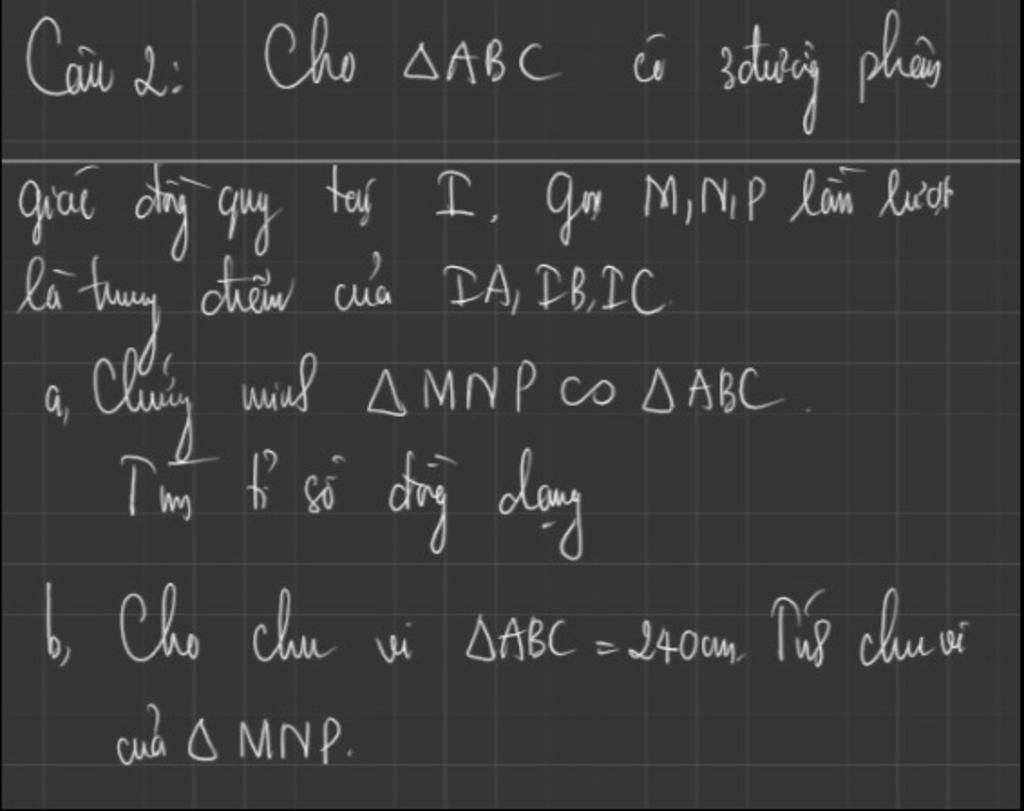 Câu 2: Cho ΔABC có 3 đường phân
giác đồng quy tại I. Gọi M, N, P lần lượt
là trung điểm của IA, IB, IC
a, Chứng minh ΔMNP ∽ ΔABC.
Tìm tỉ số đồng dạng
b, Cho chu vi ΔABC = 240cm. Tính chu vi
của Δ MNP.